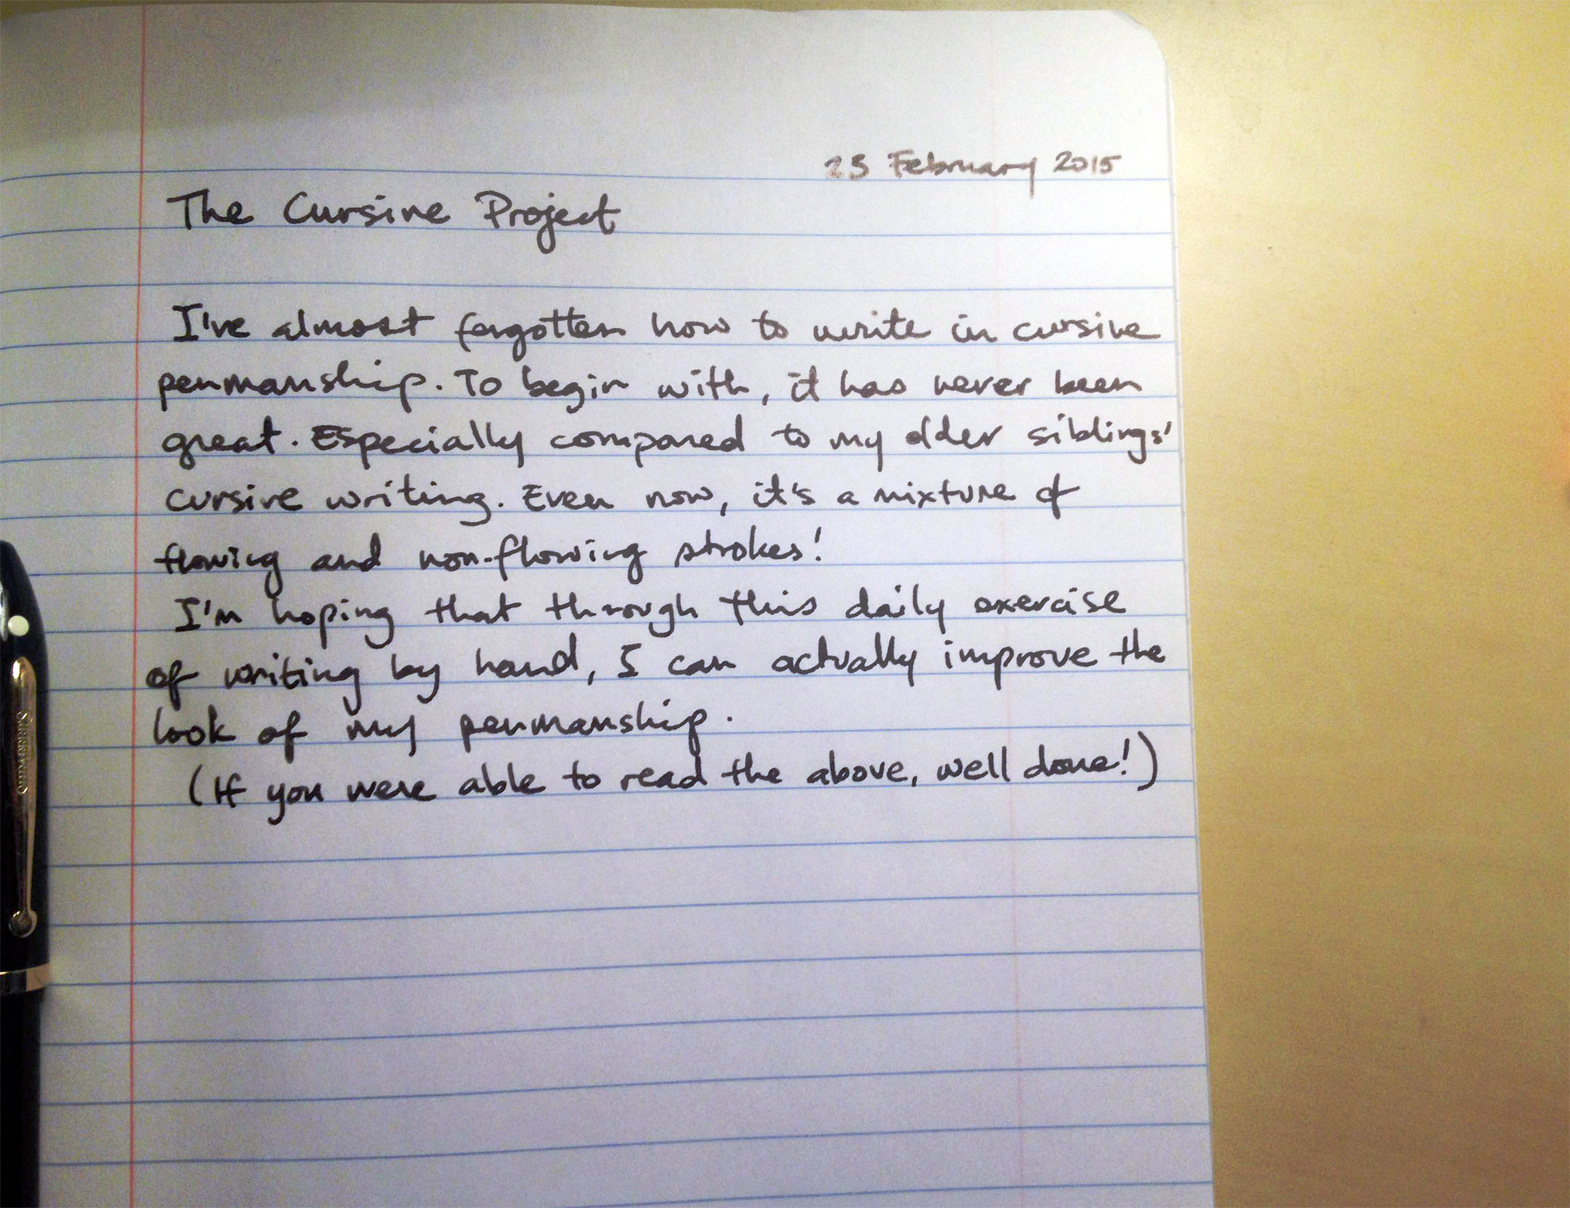 23 February 2015
The Cursive Project
I've almost forgotten how to write in cursive
penmanship. To begin with, it has never been
great. Especially compared to my older siblings'
cursive writing. Even now, it's a mixture of
flowing and non-flowing strokes!
I'm hoping that through this daily exercise
of writing by hand, I can actually improve the
look of my penmanship.
(If you were able to read the above, well done!)